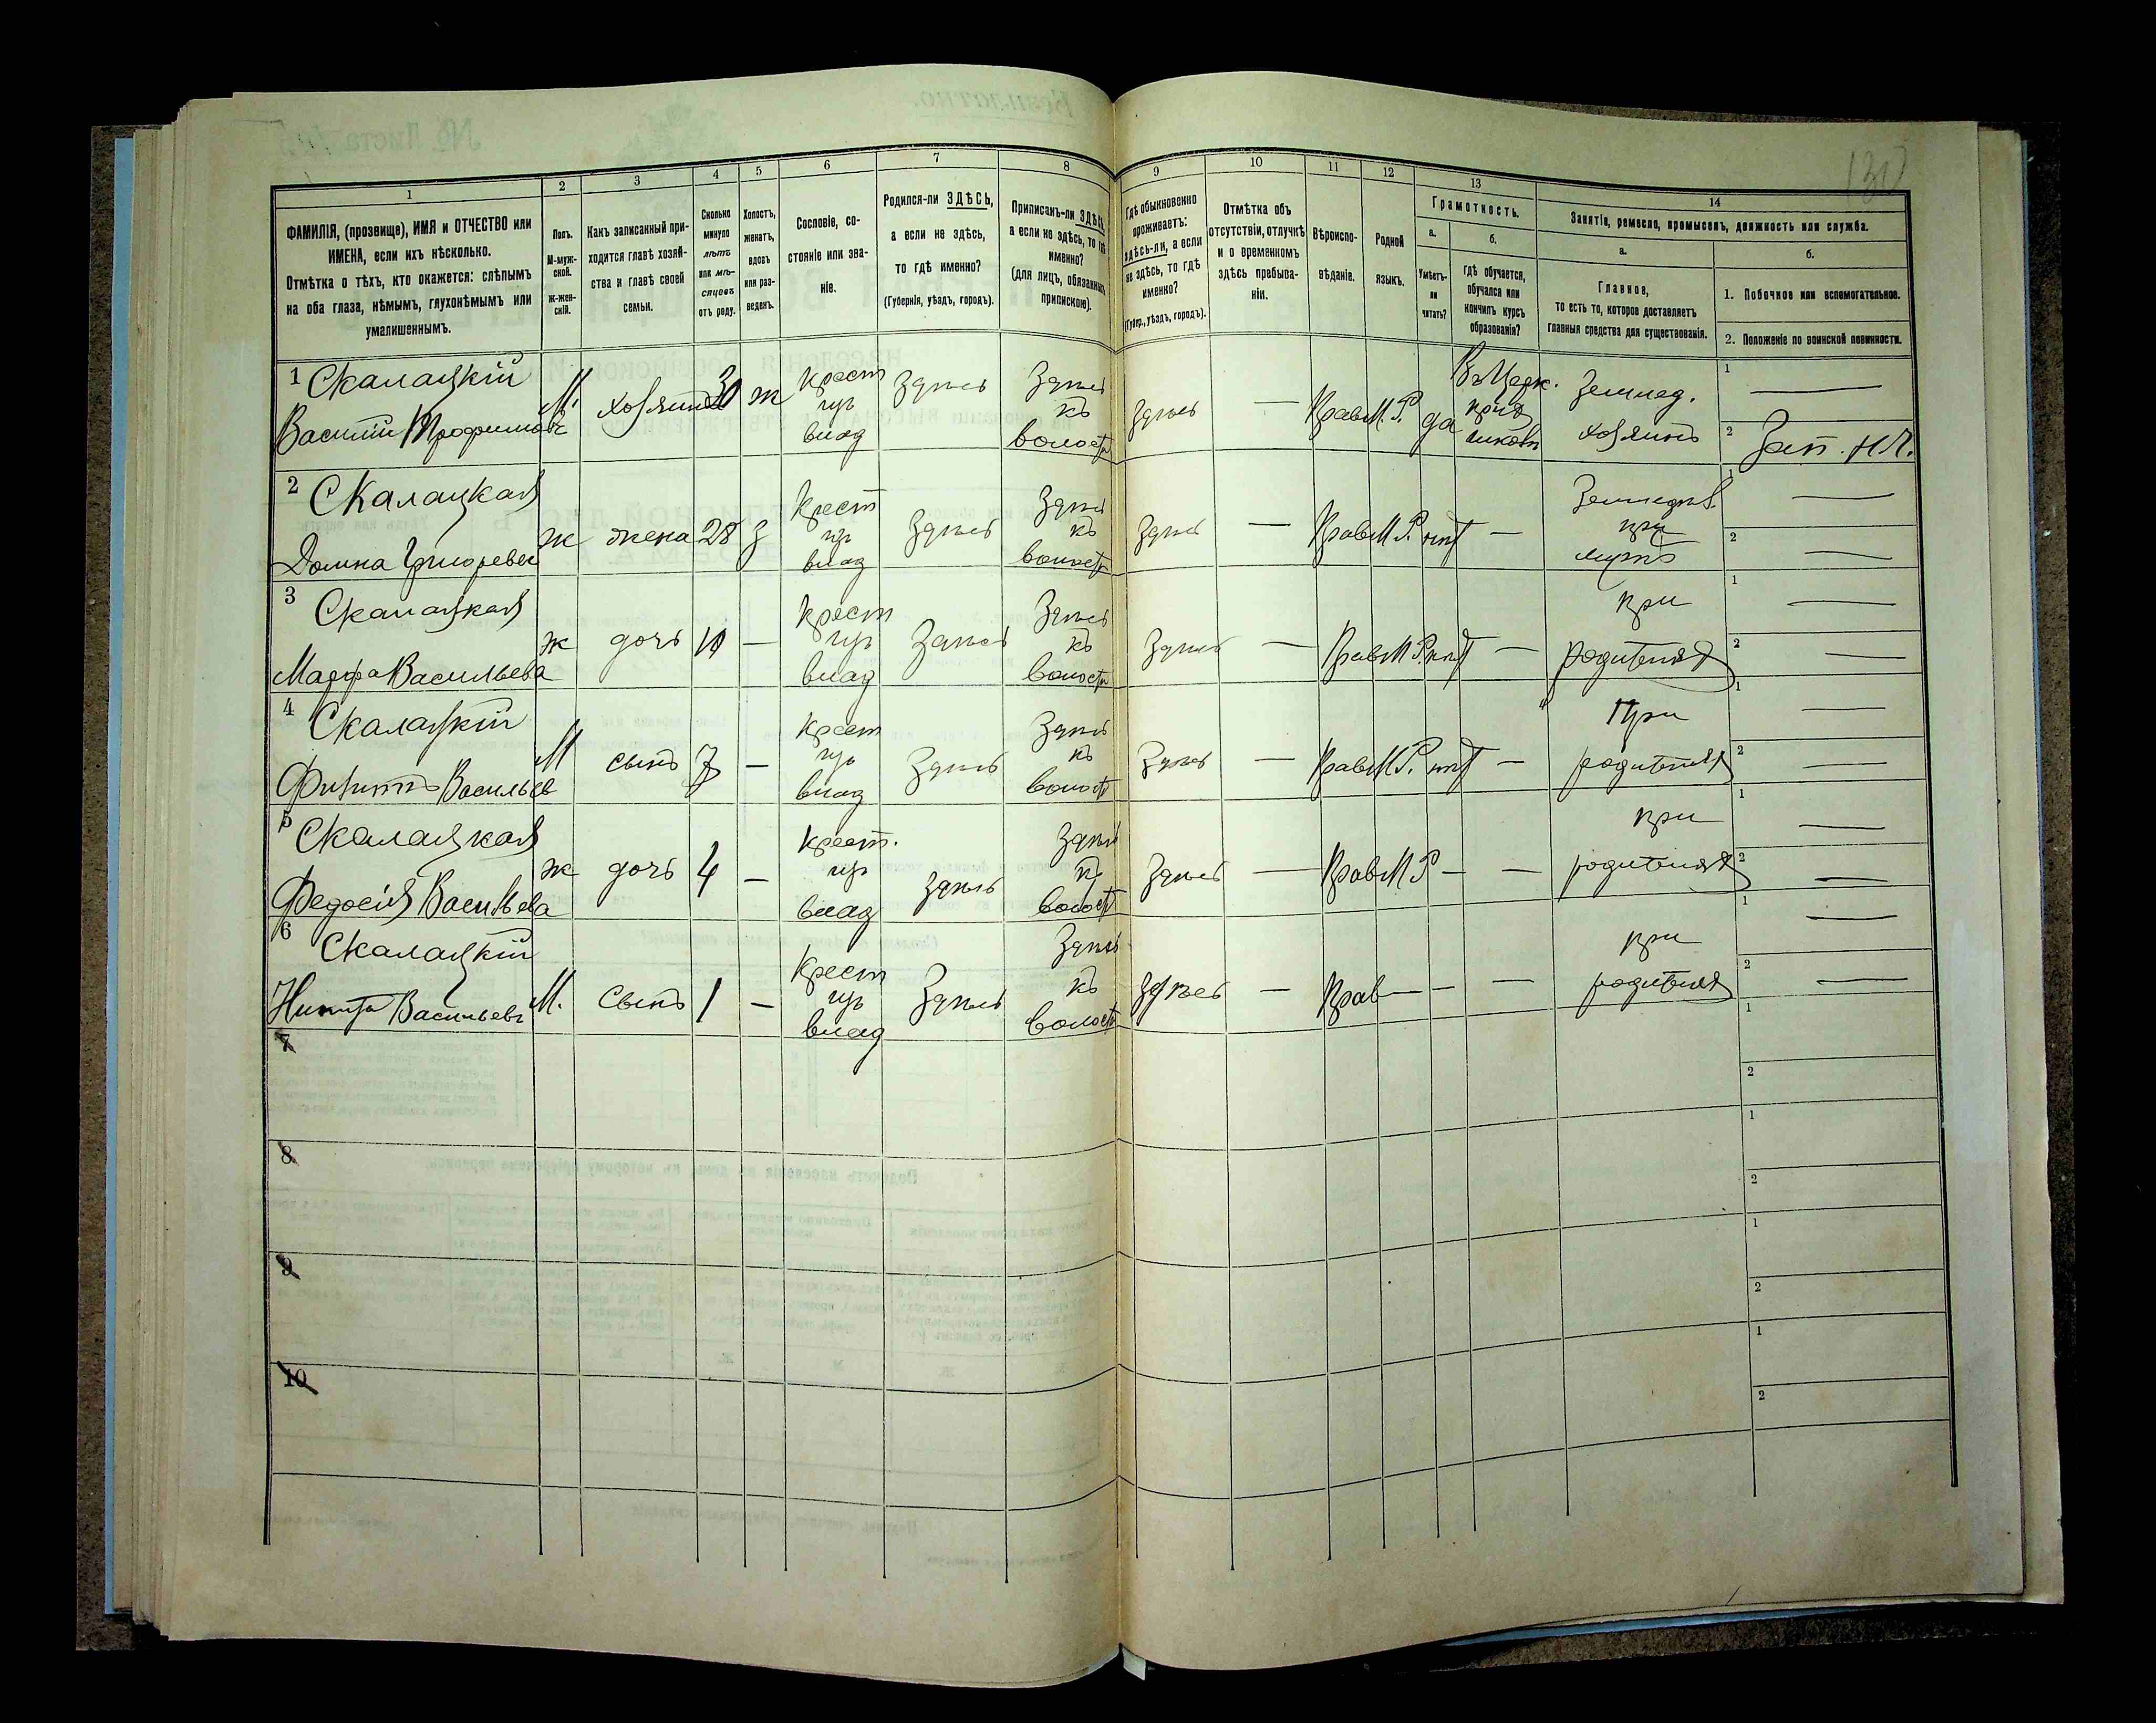 130
1
2
3
4
5
6
7
8
9
10
11
12
13
14
ФАМИЛІЯ, (прозвище), ИМЯ и ОТЧЕСТВО или
ИМЕНА, если ихъ нѣсколько.
Отмѣтка о тѣхъ, кто окажется: слѣпымъ
на оба глаза, нѣмымъ, глухонѣмымъ или
умалишеннымъ.
Полъ.
М-муж-
ской.
Ж-жен-
скій.
Какъ записанный при-
ходится главѣ хозяй-
ства и главѣ своей
семьи.
Сколько
минуло
лѣтъ
или мѣ-
сяцевъ
отъ роду.
Холостъ,
женатъ,
вдовъ
или раз-
веденъ.
Сословіе, со-
стояніе или зва-
ніе.
Родился-ли ЗДѢСЬ,
а если не здѣсь,
то гдѣ именно?
(Губернія, уѣздъ, городъ).
Приписанъ-ли ЗДѢСЬ,
а если не здѣсь, то гдѣ
именно?
(для лицъ, обязанныхъ
припискою).
Гдѣ обыкновенно
проживаетъ:
здѣсь-ли, а если
не здѣсь, то гдѣ
именно?
(Губер., уѣздъ, городъ).
Отмѣтка объ
отсутствіи, отлучкѣ
и о временномъ
здѣсь пребыва-
ніи.
Вѣроиспо-
вѣданіе.
Родной
языкъ.
Грамотность.
а.
Умѣетъ-
ли
читать?
б.
гдѣ обучается,
обучался или
кончилъ курсъ
образованія?
Занятія, ремесло, промыселъ, должность или служба.
а.
Главное,
то есть то, которое доставляетъ
главныя средства для существованія.
б.
1. Побочное или вспомогательное.
2. Положеніе по воинской повинности.
1 Скалацкій
Василій Трофимовъ
М.
хозяинъ
30
ж
крест
изъ
влад
Здѣсь
Здѣсь
къ
волости
Здѣсь
—
Прав
М.Р.
да
Въ Церк.
прих
школѣ
Земмед.
хозяинъ
1 —
2 Зап. НЧ.
2 Скалацкая
Домна Григорьева
ж
жена
28
з
крест
изъ
влад
Здѣсь
Здѣсь
къ
волости
Здѣсь
—
Прав
М.Р.
нѣт
—
при
мужѣ
1 —
2 —
3 Скалацкая
Марфа Васильева
ж
дочь
10
—
крест
изъ
влад
Здѣсь
Здѣсь
къ
волости
Здѣсь
—
Прав
М.Р.
нѣт
—
при
родителях
1 —
2 —
4 Скалацкій
Филипъ Васильев
М
сынъ
7
—
крест
изъ
влад
Здѣсь
Здѣсь
къ
волости
Здѣсь
—
Прав
М.Р.
нѣт
—
При
родителях
1 —
2 —
5 Скалацкая
Федосія Васильева
ж
дочь
4
—
крест.
изъ
влад
Здѣсь
Здѣсь
къ
волости
Здѣсь
—
Прав
М.Р.
—
—
при
родителях
1 —
2 —
6 Скалацкій
Никита Васильевъ
М.
Сынъ
1
—
крест
изъ
влад
Здѣсь
Здѣсь
къ
волости
Здѣсь
—
Прав
—
—
—
при
родителях
1 —
2 —
7
1
2
8
1
2
9
1
2
10
1
2